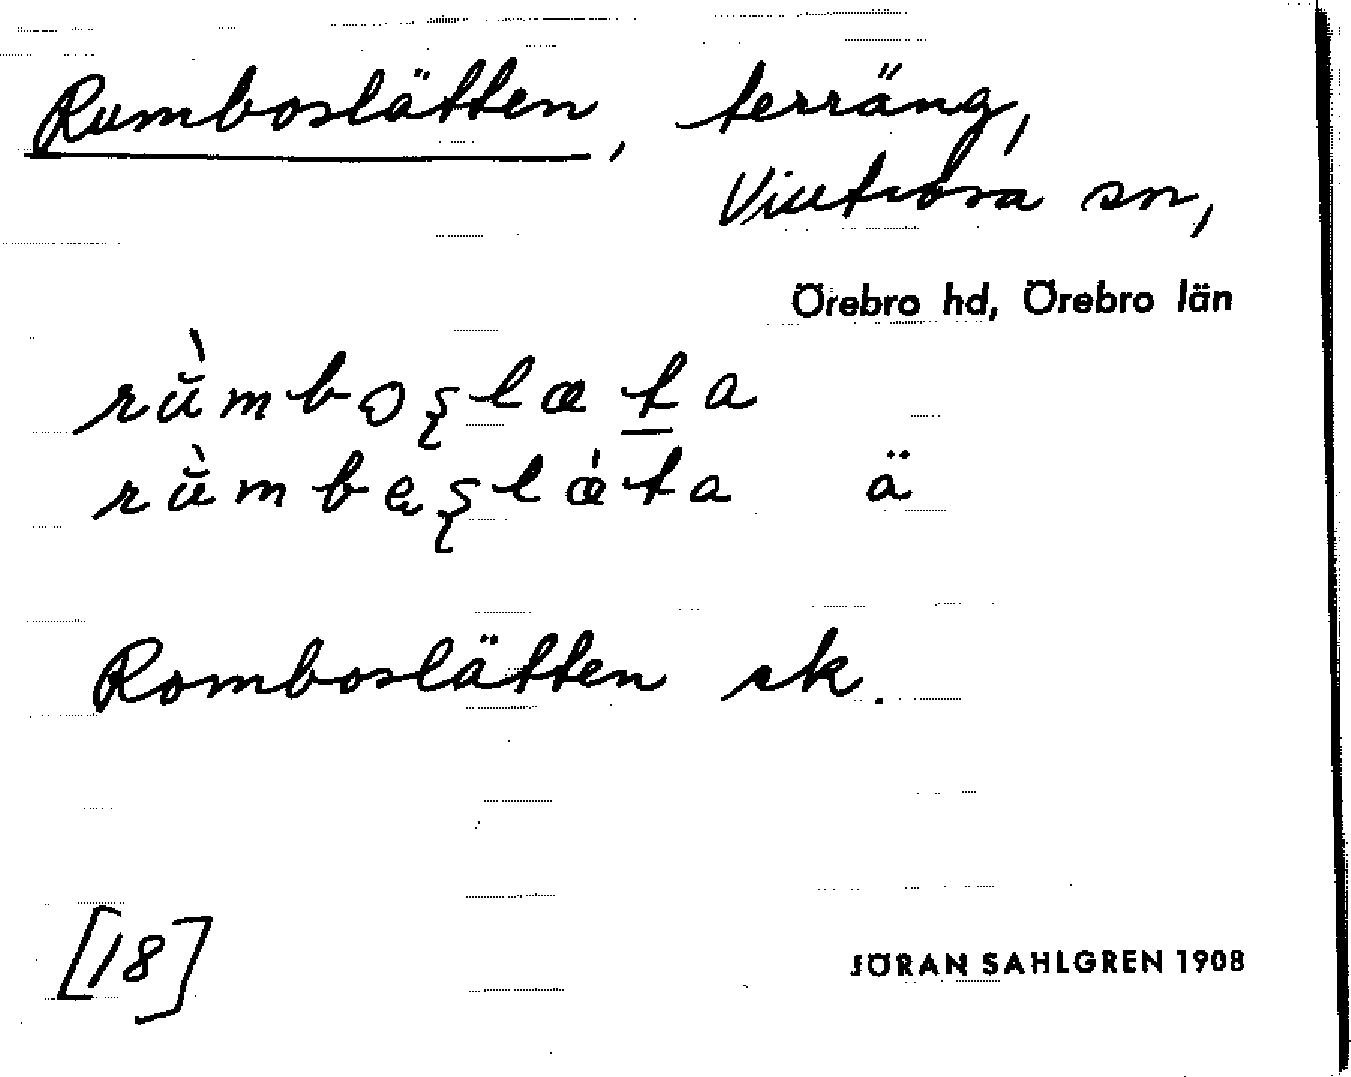 Rumboslätten, terräng,
Vintrosa sn,
Örebro hd, Örebro län
rùmboʂlæta
rùmbeʂlæ̍ta ä
Romboslätten sk.
[18]
JÖRAN SAHLGREN 1908